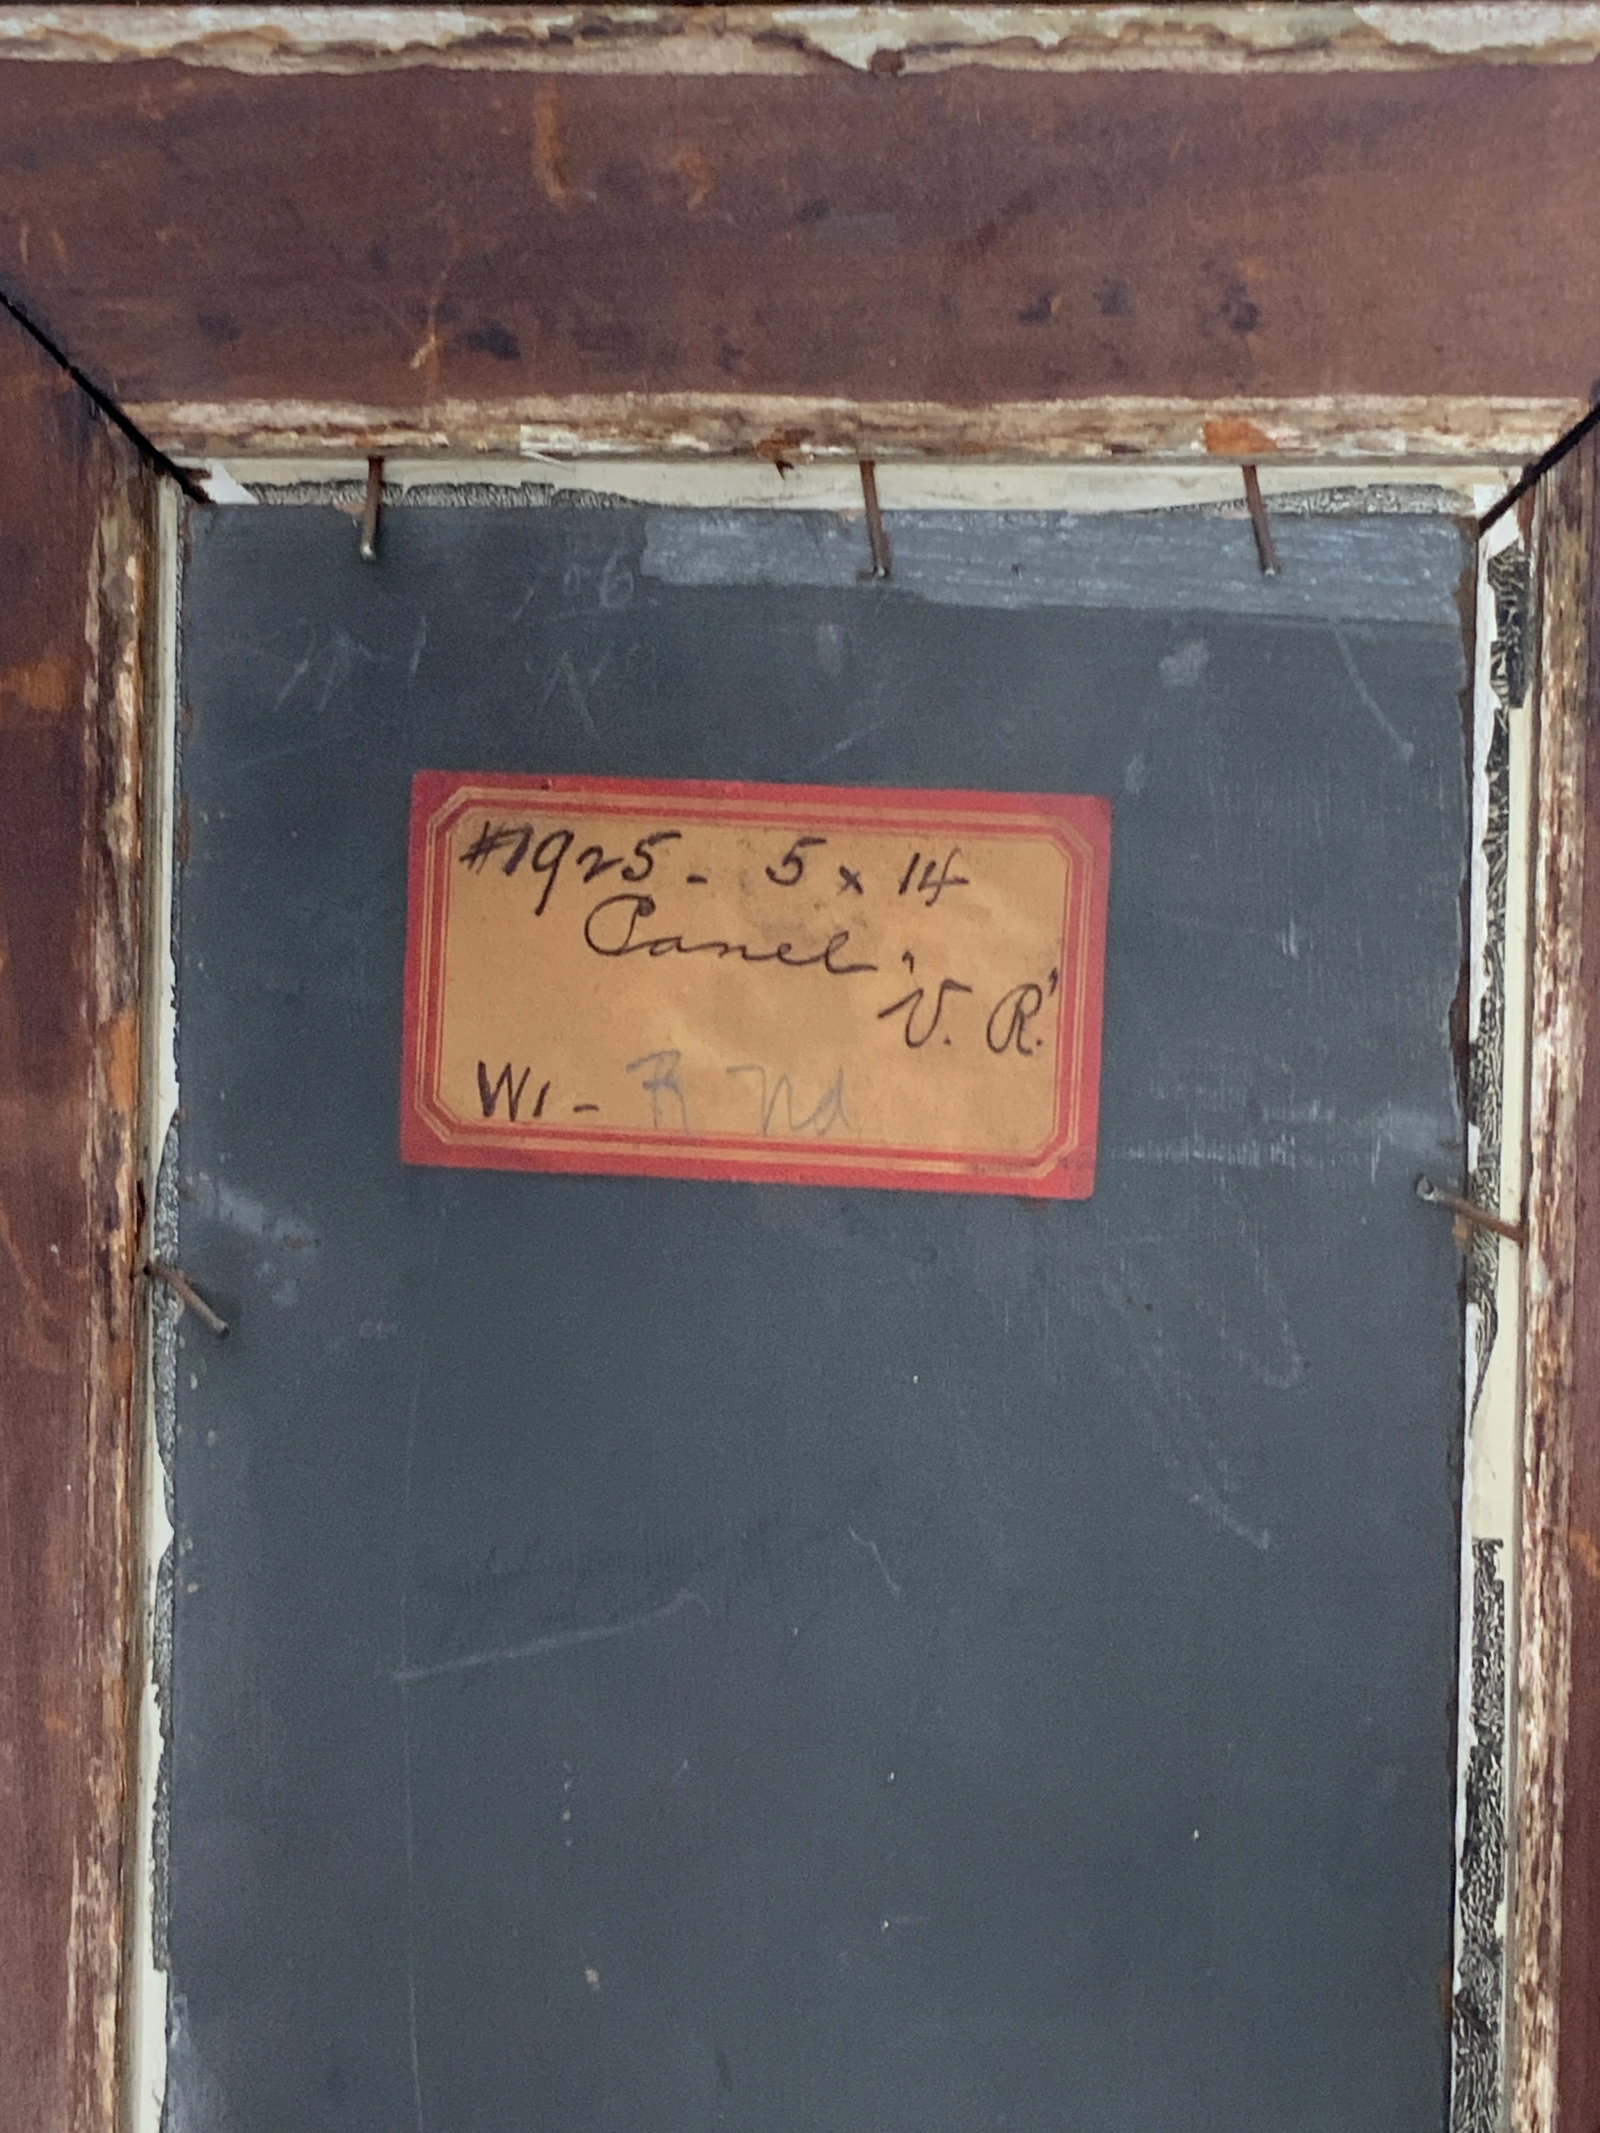 #1925 - 5 x 14
Panel
"V. R."
W1 -